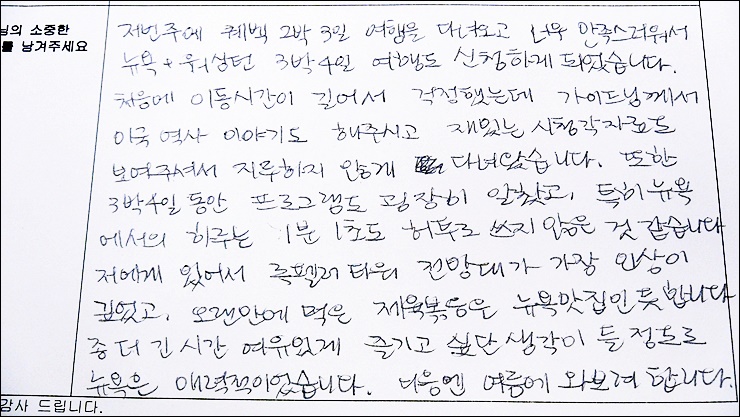 님의 소중한
를 남겨주세요
저번주에 퀘벡 2박 3일 여행을 다녀오고 너무 만족스러워서
뉴욕 + 워싱턴 3박 4일 여행도 신청하게 되었습니다.
처음에 이동시간이 길어서 걱정했는데 가이드님께서
미국 역사 이야기도 해주시고 재밌는 시청각자료도
보여주셔서 지루하지 않게 다녀왔습니다. 또한
3박4일 동안 프로그램도 굉장히 알찼고, 특히 뉴욕
에서의 하루는 1분 1초도 허투로 쓰지 않은 것 같습니다
저에게 있어서 록펠러 타워 전망대가 가장 인상이
깊었고, 오랜만에 먹은 제육볶음은 뉴욕맛집인듯 합니다
좀 더 긴 시간 여유있게 즐기고 싶단 생각이 들 정도로
뉴욕은 매력적이었습니다. 다음엔 여름에 와보려 합니다.
감사 드립니다.